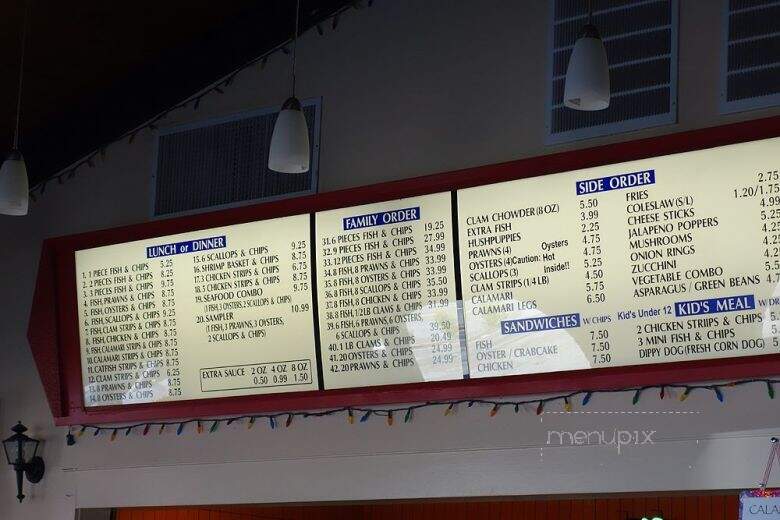 LUNCH or DINNER
1. 1 PIECE FISH & CHIPS 5.25
2. 2 PIECES FISH & CHIPS 8.25
3. 3 PIECES FISH & CHIPS 9.75
4. FISH, PRAWNS & CHIPS 8.75
5. FISH, OYSTERS & CHIPS 8.75
6. FISH, SCALLOPS & CHIPS 9.25
7. FISH, CLAM STRIPS & CHIPS 8.75
8. FISH, CHICKEN & CHIPS 8.75
9. FISH, CALAMARI & CHIPS 8.75
10. CALAMARI STRIPS & CHIPS 8.75
11. CATFISH STRIPS & CHIPS 8.75
12. CLAM STRIPS & CHIPS 6.25
13. 8 PRAWNS & CHIPS 8.75
14. 8 OYSTERS & CHIPS 8.75
15. 6 SCALLOPS & CHIPS 9.25
16. SHRIMP BASKET & CHIPS 8.75
17. 3 CHICKEN STRIPS & CHIPS 6.75
18. 5 CHICKEN STRIPS & CHIPS 8.75
19. SEAFOOD COMBO 9.75
(1 FISH, 3 OYSTERS, 2 SCALLOPS & CHIPS)
20. SAMPLER 10.99
(1 FISH, 3 PRAWNS, 3 OYSTERS,
2 SCALLOPS & CHIPS)
EXTRA SAUCE 2 OZ 4 OZ 8 OZ
0.50 0.99 1.50
FAMILY ORDER
31. 6 PIECES FISH & CHIPS 19.25
32. 9 PIECES FISH & CHIPS 27.99
33. 12 PIECES FISH & CHIPS 34.99
34. 8 FISH, 8 PRAWNS & CHIPS 33.99
35. 8 FISH, 8 OYSTERS & CHIPS 33.99
36. 8 FISH, 8 SCALLOPS & CHIPS 35.50
37. 8 FISH, 8 CHICKEN & CHIPS 33.99
38. 8 FISH, 1/2LB CLAMS & CHIPS 31.99
39. 6 FISH, 6 PRAWNS, 6 OYSTERS,
6 SCALLOPS & CHIPS 39.50
40. 1 LB CLAMS & CHIPS 20.49
41. 20 OYSTERS & CHIPS 24.99
42. 20 PRAWNS & CHIPS 24.99
SIDE ORDER
CLAM CHOWDER (8 OZ) 5.50
EXTRA FISH 3.99
HUSHPUPPIES 2.25
PRAWNS (4) 4.75
OYSTERS (4) Caution: Hot Oysters Inside!! 4.75
SCALLOPS (3) 5.25
CLAM STRIPS (1/4 LB) 4.50
CALAMARI 5.75
CALAMARI LEGS 6.50
FRIES 2.75
COLESLAW (S/L) 1.20/1.75
CHEESE STICKS 4.99
JALAPENO POPPERS
MUSHROOMS
ONION RINGS
ZUCCHINI
VEGETABLE COMBO
ASPARAGUS / GREEN BEANS
SANDWICHES W/ CHIPS
FISH 7.50
OYSTER / CRABCAKE 7.50
CHICKEN 7.50
Kid's Under 12 KID'S MEAL
2 CHICKEN STRIIPS & CHIPS
3 MINI FISH & CHIPS
DIPPY DOG (FRESH CORN DOG)
menupix
CALA